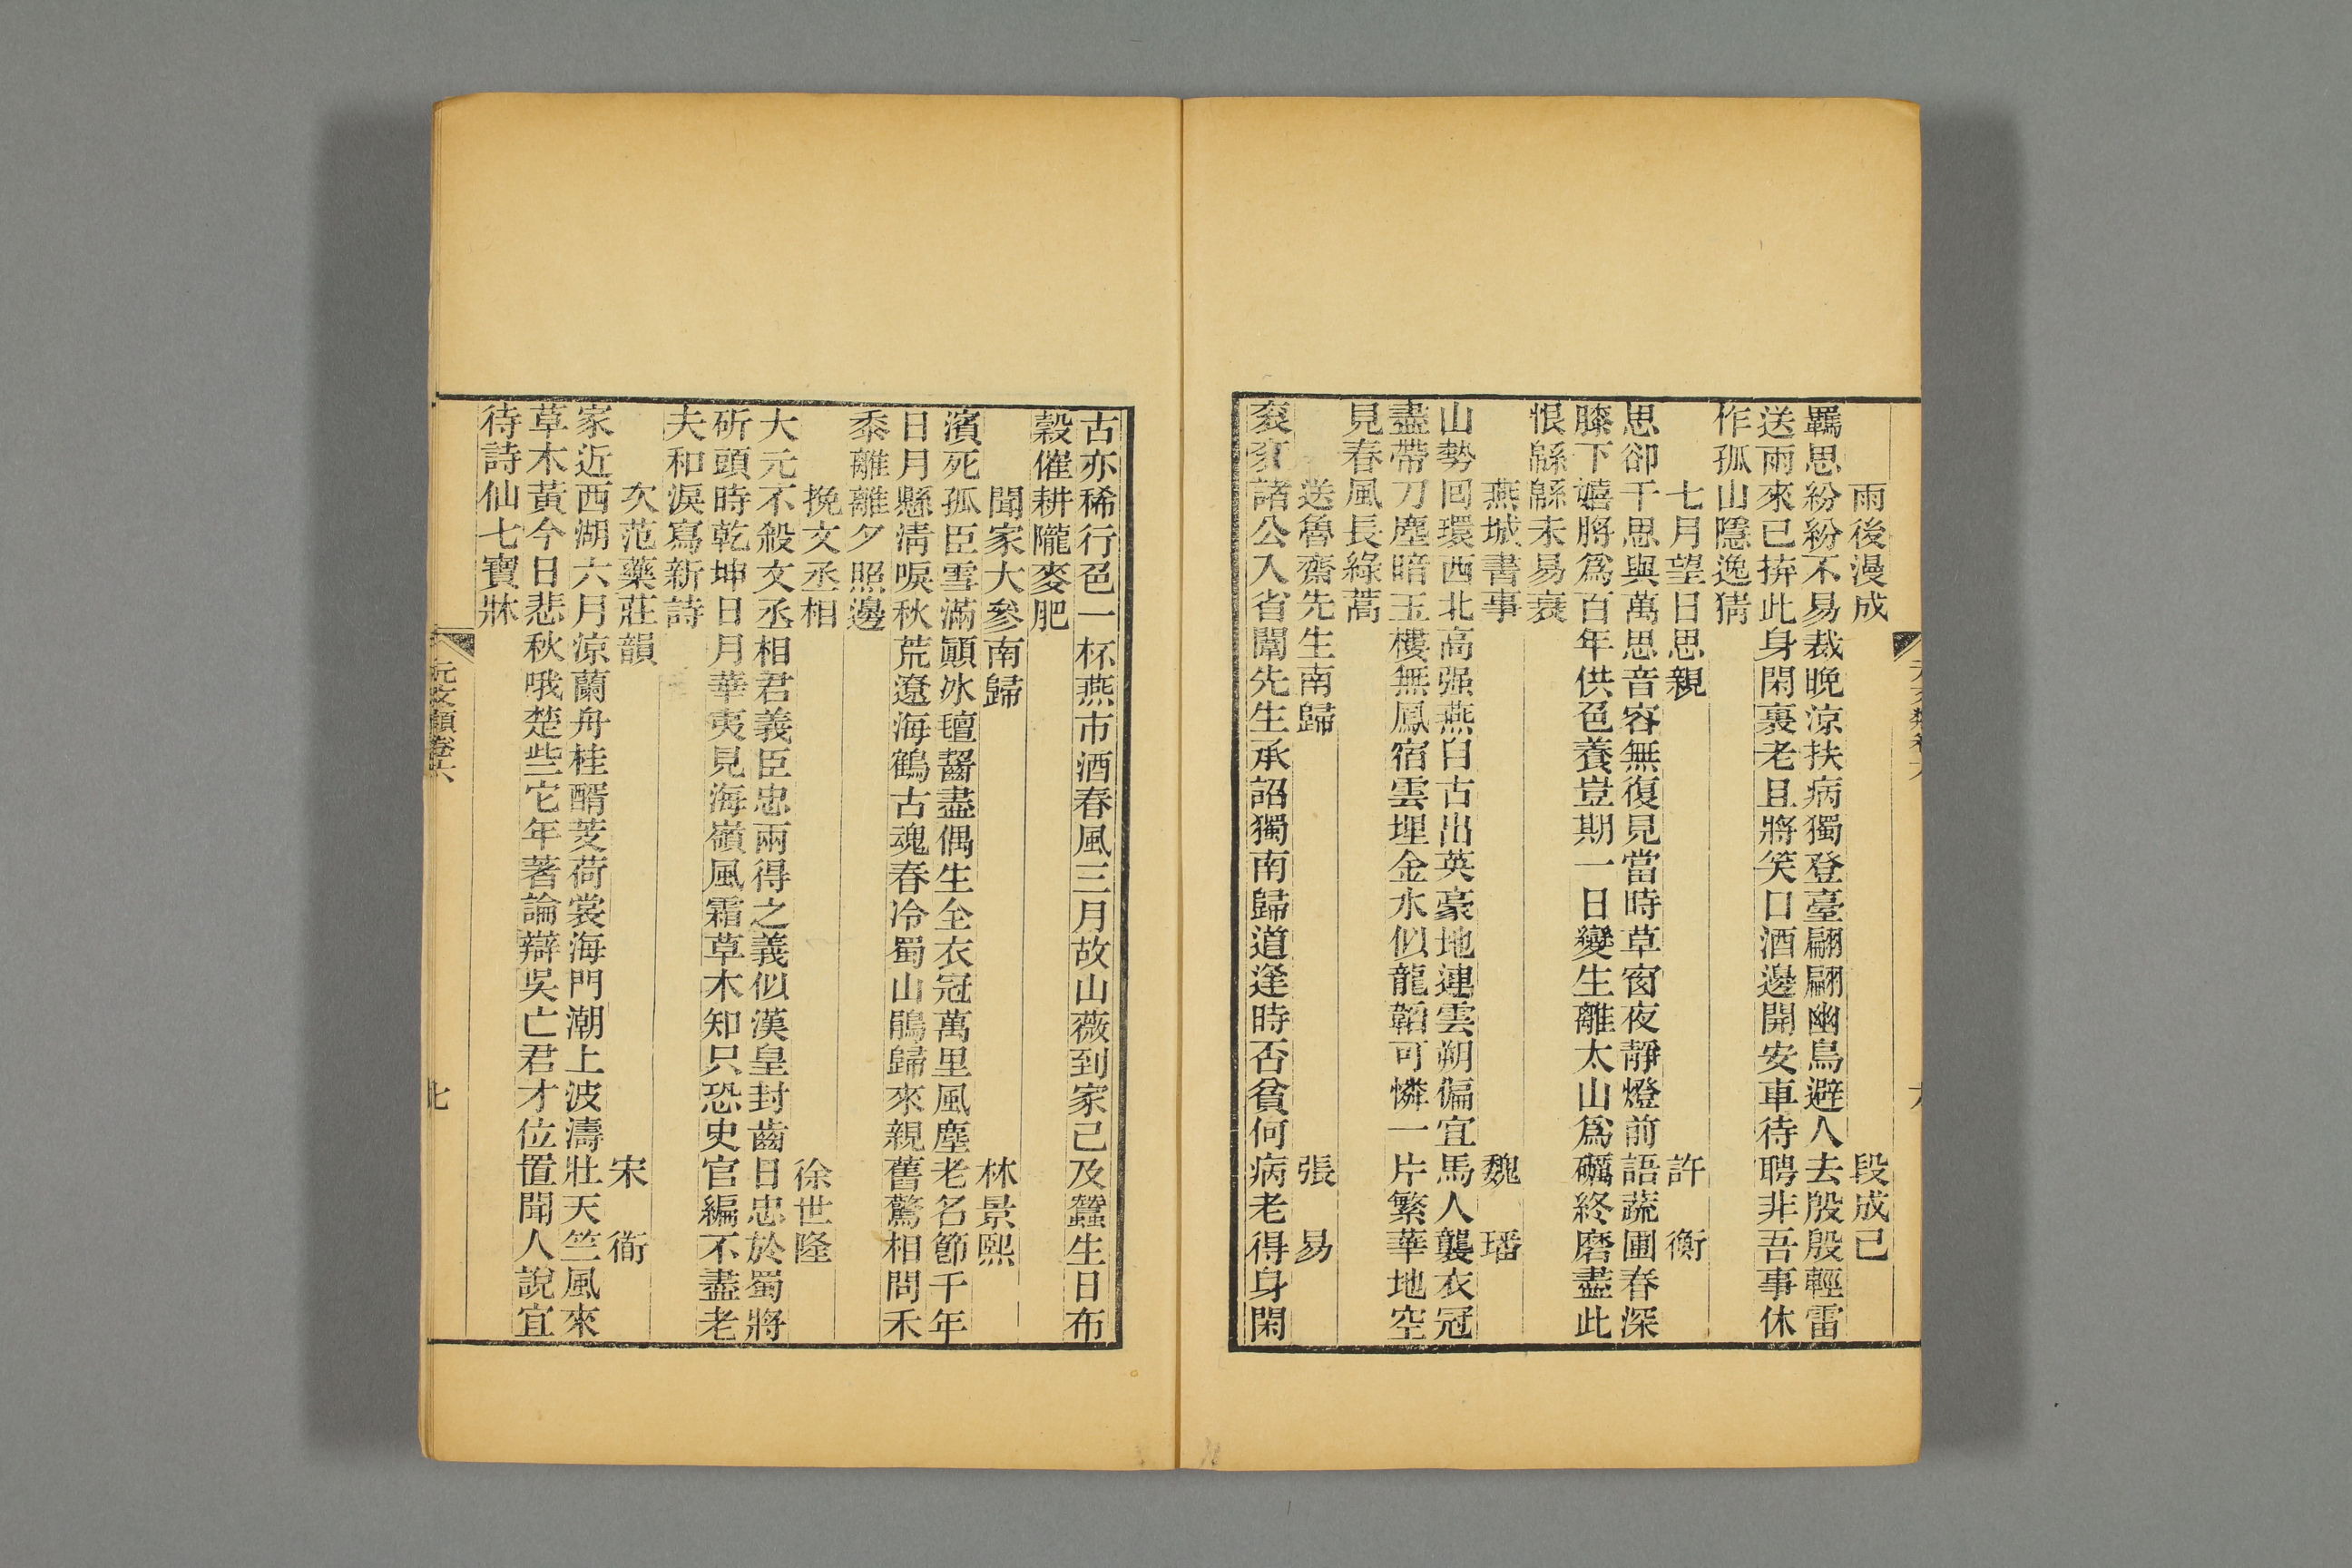 雨後漫成　段成己
羈思紛紛不易裁晚涼扶病獨登臺翩翩幽鳥避人去殷殷輕雷
送雨來已拚此身閑裏老且將笑口酒邊開安車待聘非吾事休
作孤山隱逸猜
七月望日思親　許　衡
思卻千思與萬思音容無復見當時草窗夜靜燈前語蔬圃春深
膝下嬉將爲百年供色養豈期一日變生離太山爲礪終磨盡此
恨緜緜未易衰
燕城書事　魏　璠
山勢囘環西北高强燕自古出英豪地連雲朔偏宜馬人襲衣冠
盡帶刀塵暗玉樓無鳳宿雲埋金水似龍韜可憐一片繁華地空
見春風長綠蒿
送魯齋先生南歸　張　易
袞袞諸公入省闈先生承詔獨南歸道逢時否貧何病老得身閑
古亦稀行色一杯燕市酒春風三月故山薇到家已及蠶生日布
穀催耕隴麥肥
聞家大參南歸　林景熙
濱死孤臣雪滿顚冰氊齧盡偶生全衣冠萬里風塵老名節千年
日月懸淸唳秋荒遼海鶴古魂春冷蜀山鵑歸來親舊驚相問禾
黍離離夕照邊
挽文丞相　徐世隆
大元不殺文丞相君義臣忠兩得之義似漢皇封齒日忠於蜀將
斫頭時乾坤日月華夷見海嶺風霜草木知只恐史官編不盡老
夫和淚寫新詩
次范藥莊韻　宋　衜
家近西湖六月涼蘭舟桂醑芰荷裳海門潮上波濤壯天竺風來
草木黃今日悲秋哦楚些它年著論辯吳亡君才位置聞人說宜
待詩仙七寶牀
元文類卷六
七